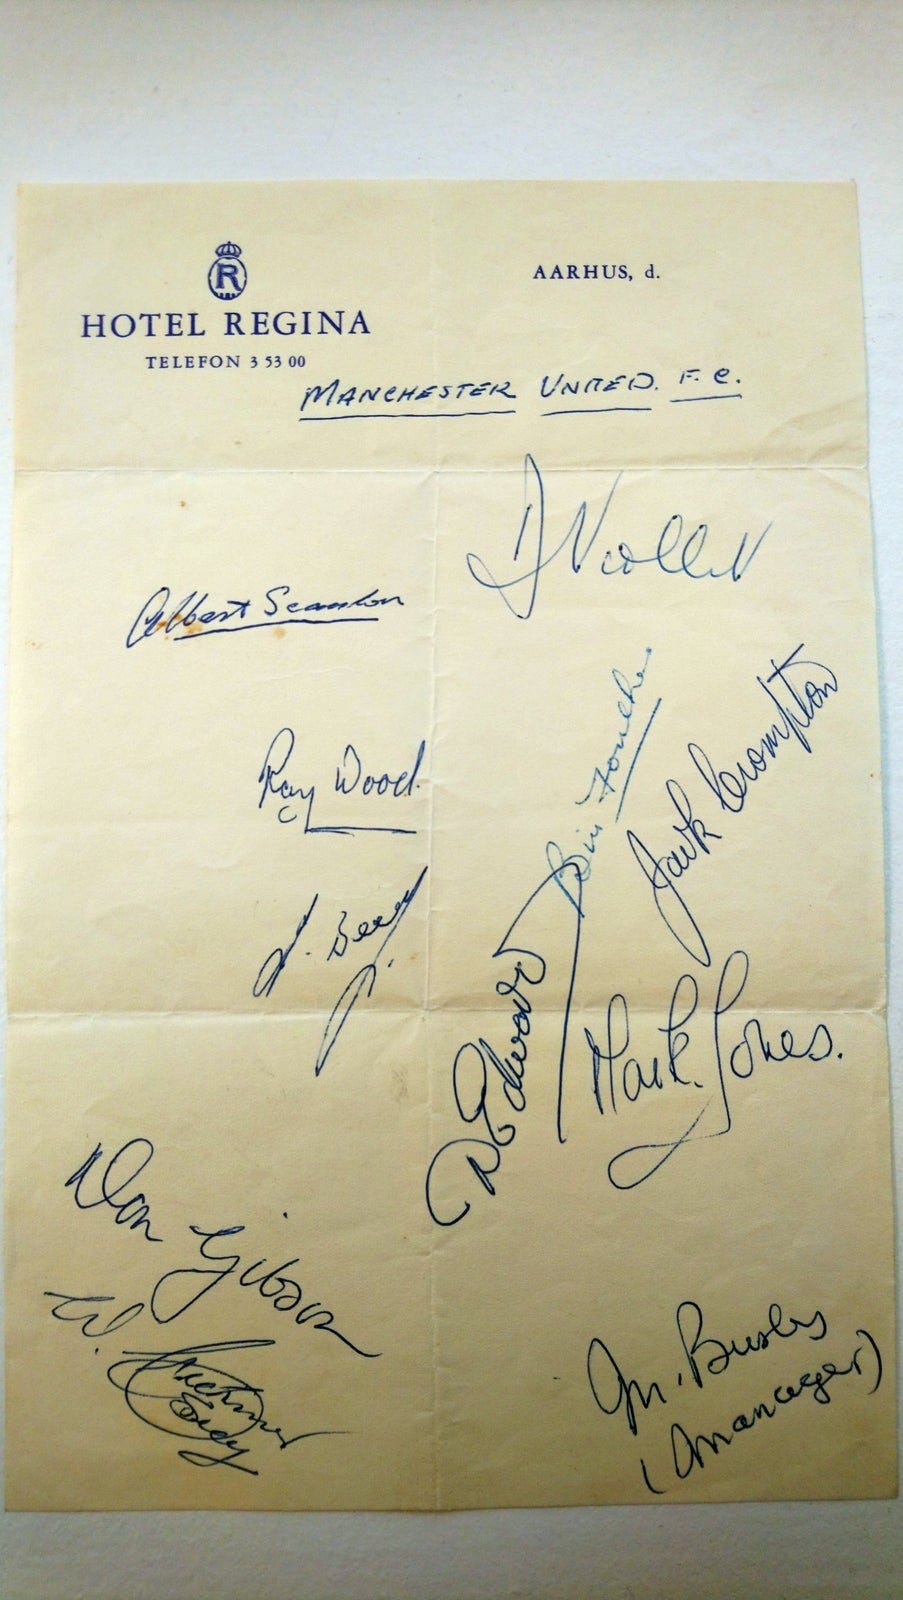 R
HOTEL REGINA
TELEFON 3 53 00
AARHUS, d.
MANCHESTER UNITED. F. C.
D Viollet
Albert Scanlon
Bill Foulkes
Jack Crompton
Ray Wood
J. Berry
D Edwards
Mark Jones.
Don Gibson
W.
M. Busby
(manager)